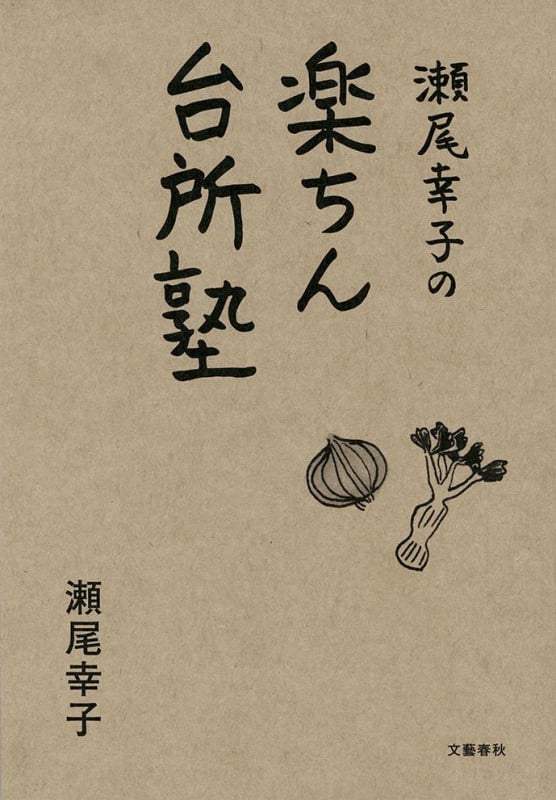 瀬尾幸子の
楽ちん
台所塾
瀬尾幸子
文藝春秋